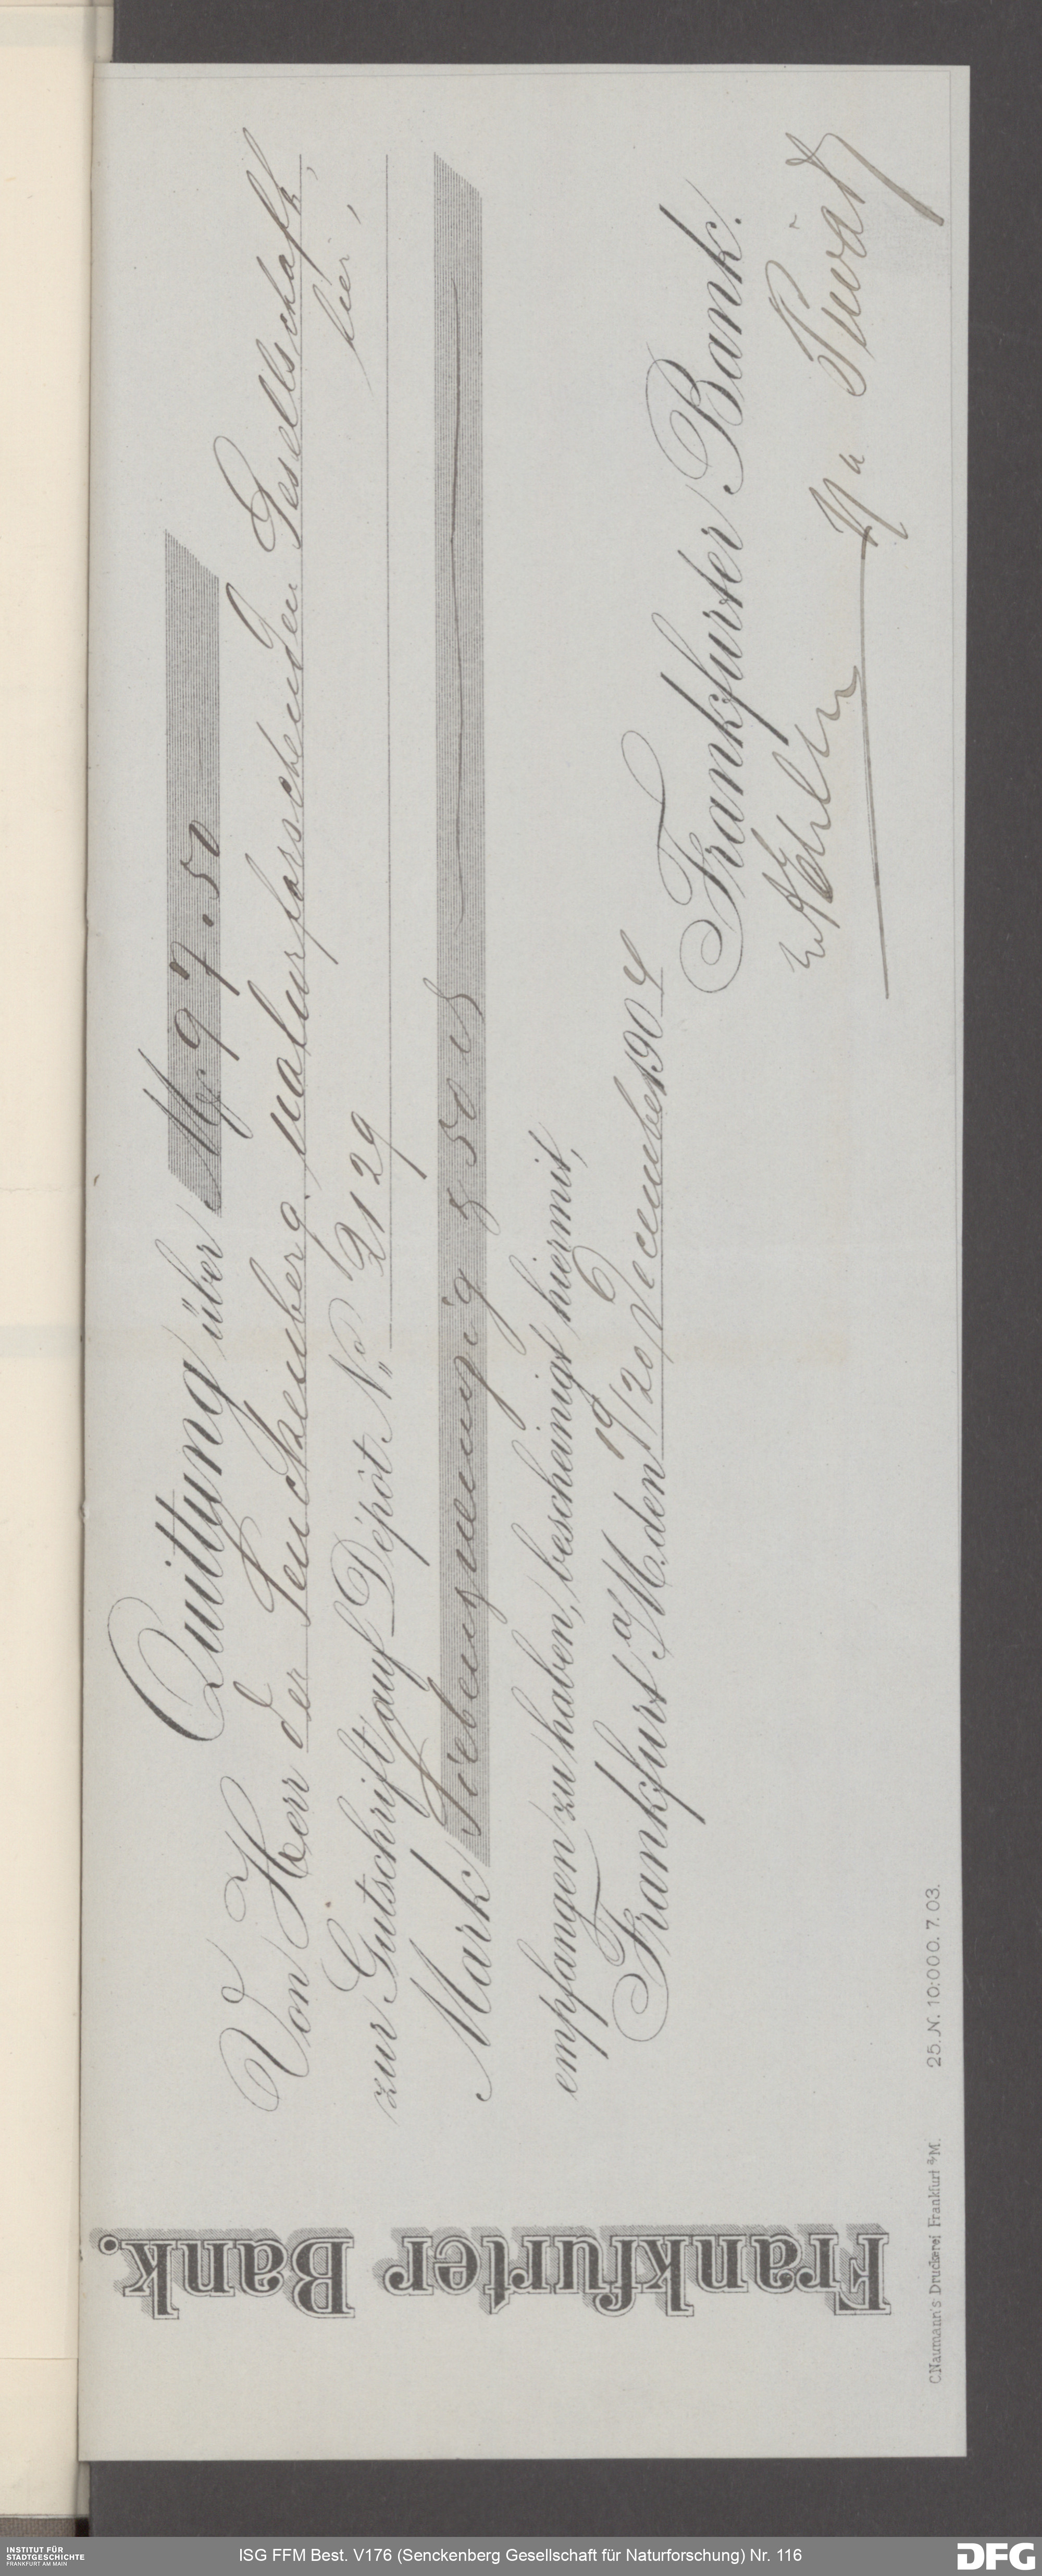 Frankfurter Bank.
Quittung über Mk 97.50
Von Herr der Senckenberg. naturforschenden Gesellschaft,
hier,
zur Gutschrift auf Dépôt No. 2129
Mark Siebenzigneunzig & 50 cs
empfangen zu haben, bescheinigt hiermit,
Frankfurt a/M. den 19/20 December 1904
Frankfurter Bank.
C. Naumann's Druckerei Frankfurt a/M.
25. N. 10:000. 7. 03.
INSTITUT FÜR
STADTGESCHICHTE
FRANKFURT AM MAIN
ISG FFM Best. V176 (Senckenberg Gesellschaft für Naturforschung) Nr. 116
DFG